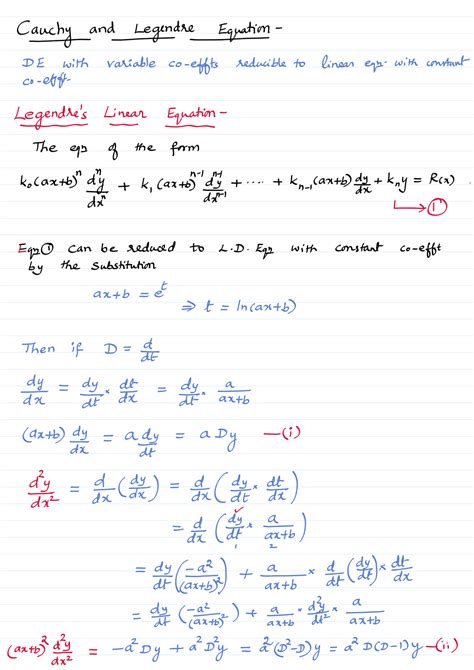 Cauchy and Legendre Equation -
DE with variable co-effts reducible to linear eqn. with constant
co-efft.
Legendre's Linear Equation -
The eqn of the form
k₀(ax+b)ⁿ dⁿy/dxⁿ + k₁(ax+b)ⁿ⁻¹ dⁿ⁻¹y/dxⁿ⁻¹ + ···· + kₙ₋₁(ax+b) dy/dx + kₙy = R(x)
↳ ①
Eqn ① can be reduced to L.D. Eqn with constant co-efft
by the substitution
ax+b = eᵗ
⇒ t = ln(ax+b)
Then if D = d/dt
dy/dx = dy/dt × dt/dx = dy/dt · a/(ax+b)
(ax+b) dy/dx = a dy/dt = a Dy —(i)
d²y/dx² = d/dx (dy/dx) = d/dx (dy/dt × dt/dx)
= d/dx (dy/dt × a/(ax+b))
1 2
= dy/dt (-a²/(ax+b)²) + a/(ax+b) × d/dt (dy/dt) × dt/dx
= dy/dt (-a²/(ax+b)²) + a/(ax+b) × d²y/dt² × a/(ax+b)
(ax+b)² d²y/dx² = -a² Dy + a² D²y = a² (D²-D)y = a² D(D-1)y —(ii)